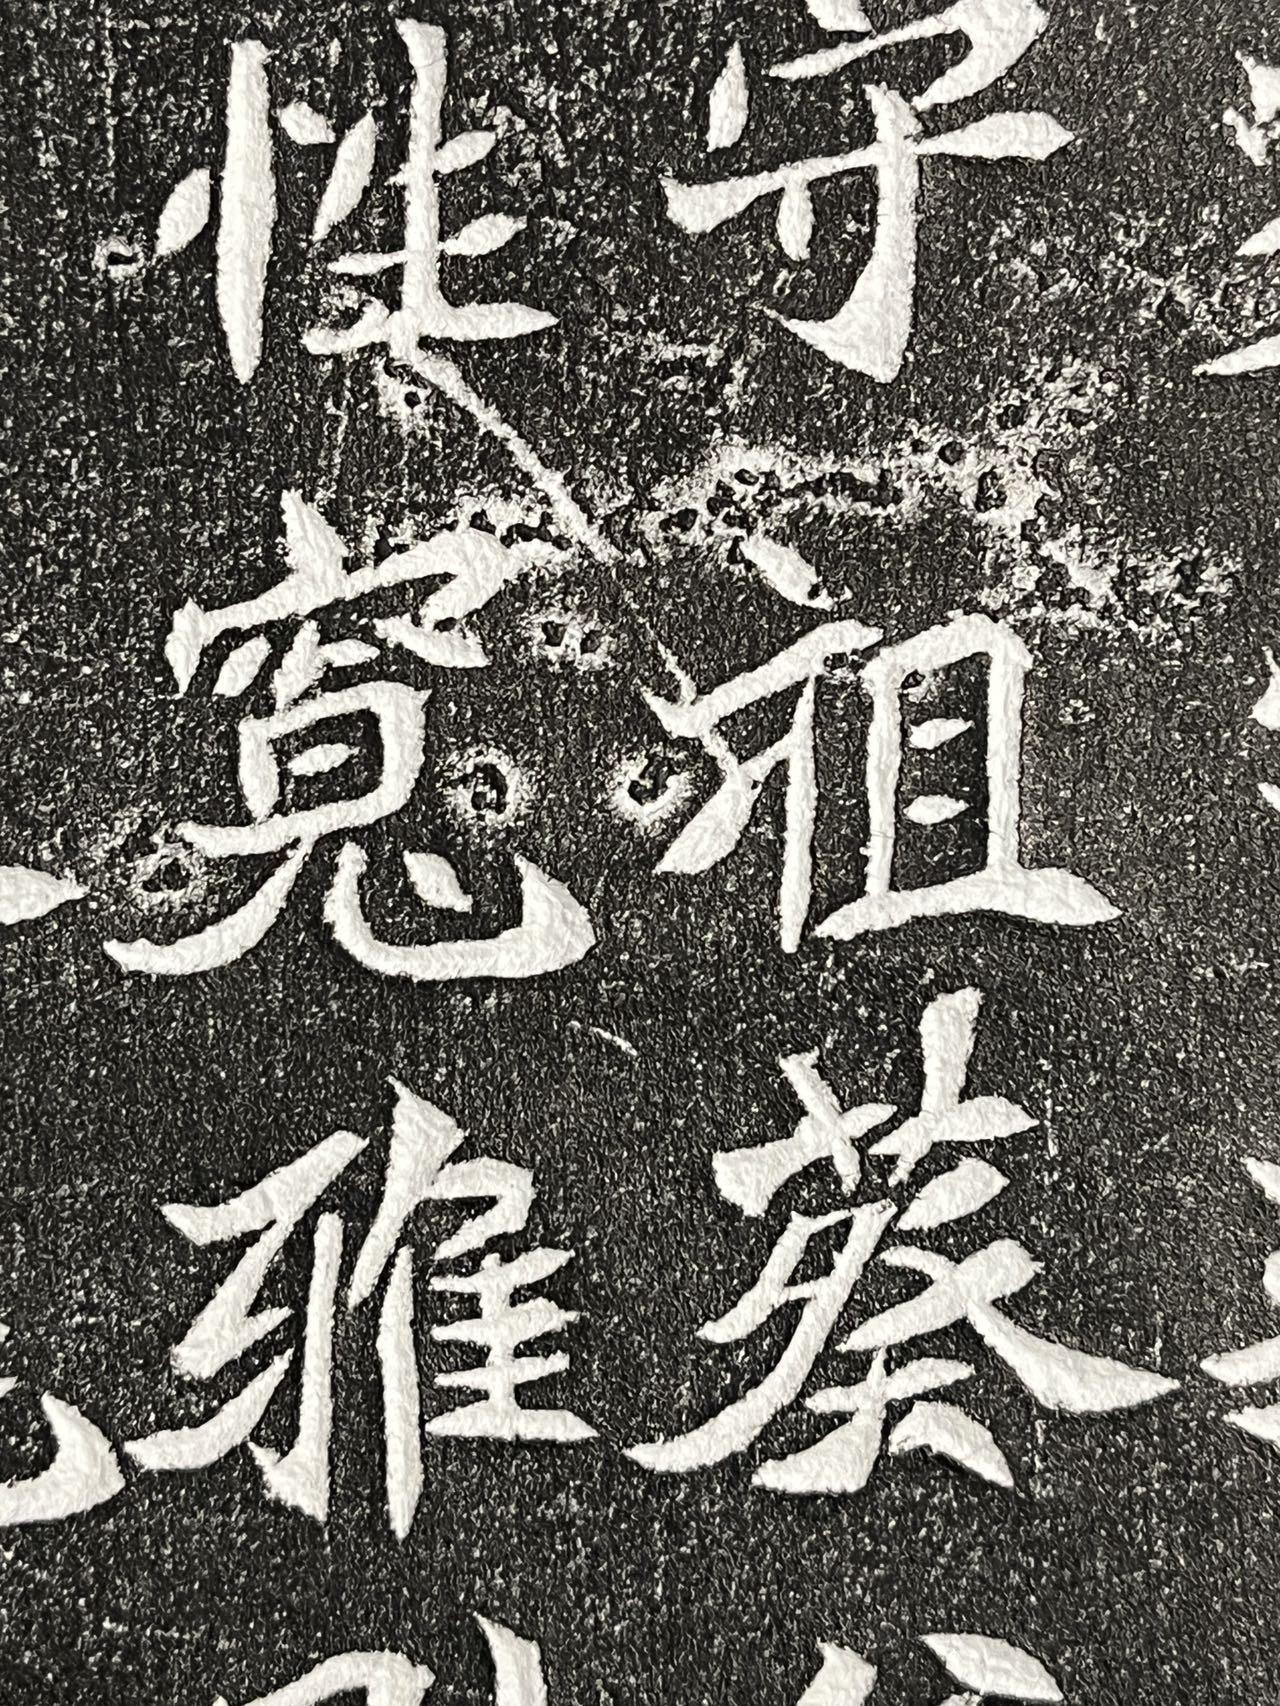 守祖葵
性寬雅